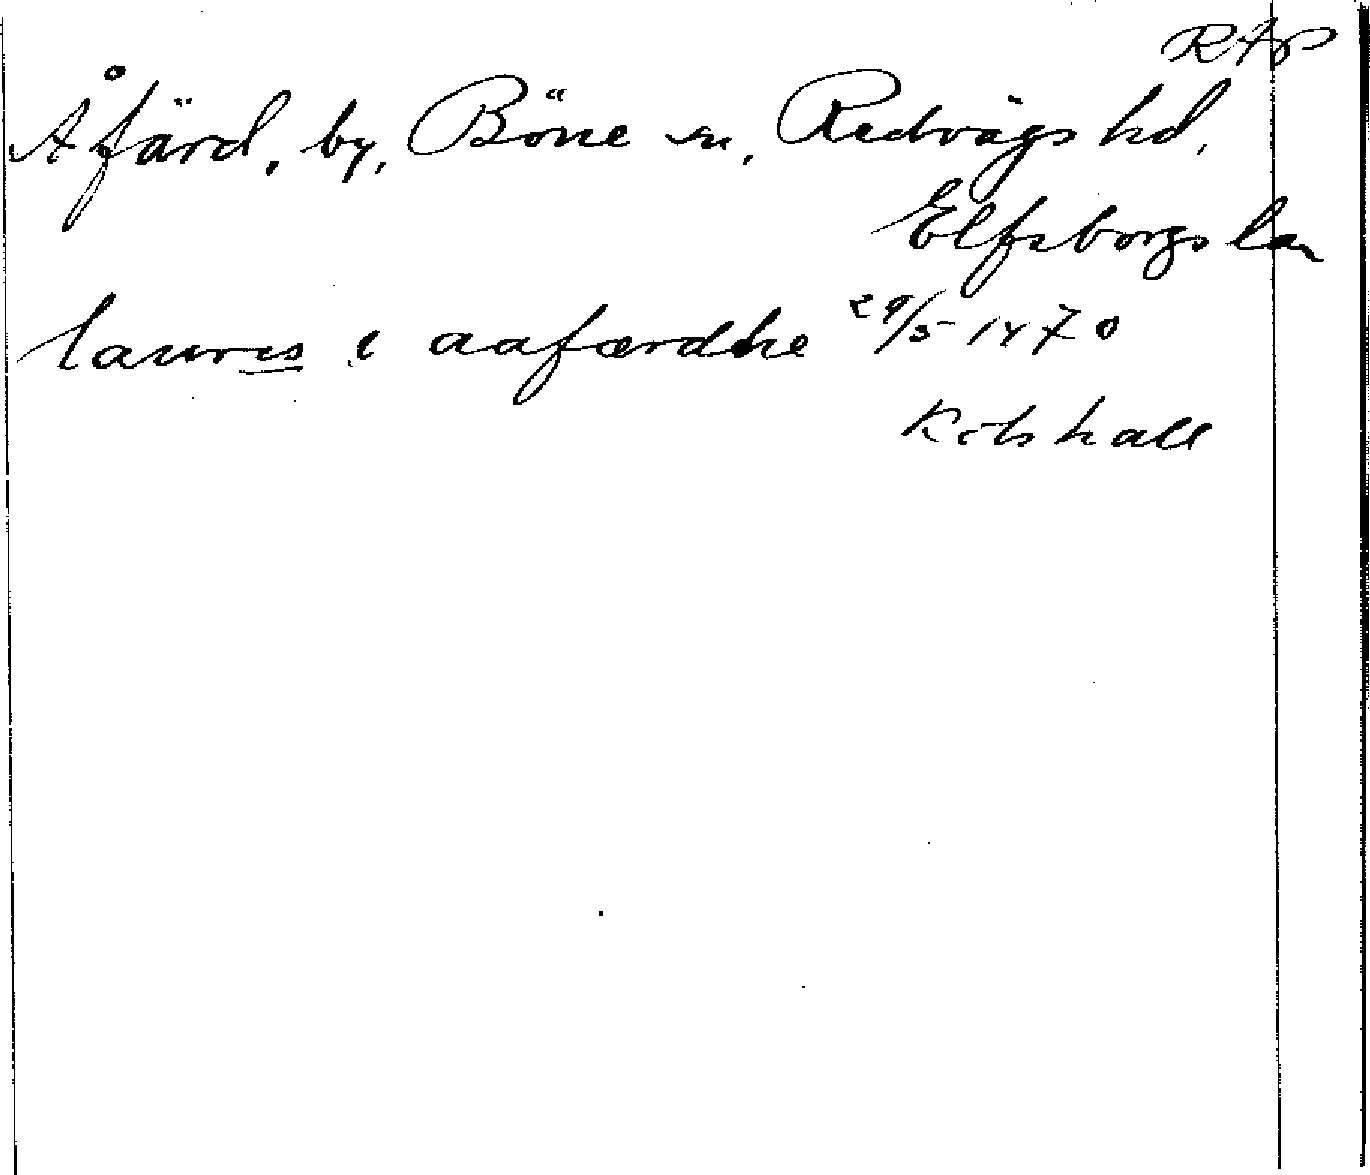 RAP
Åfärd, by, Böne sn, Redvägs hd,
Elfsborgs län
laurес i aafærdhe 29/5 1470
Kölshall